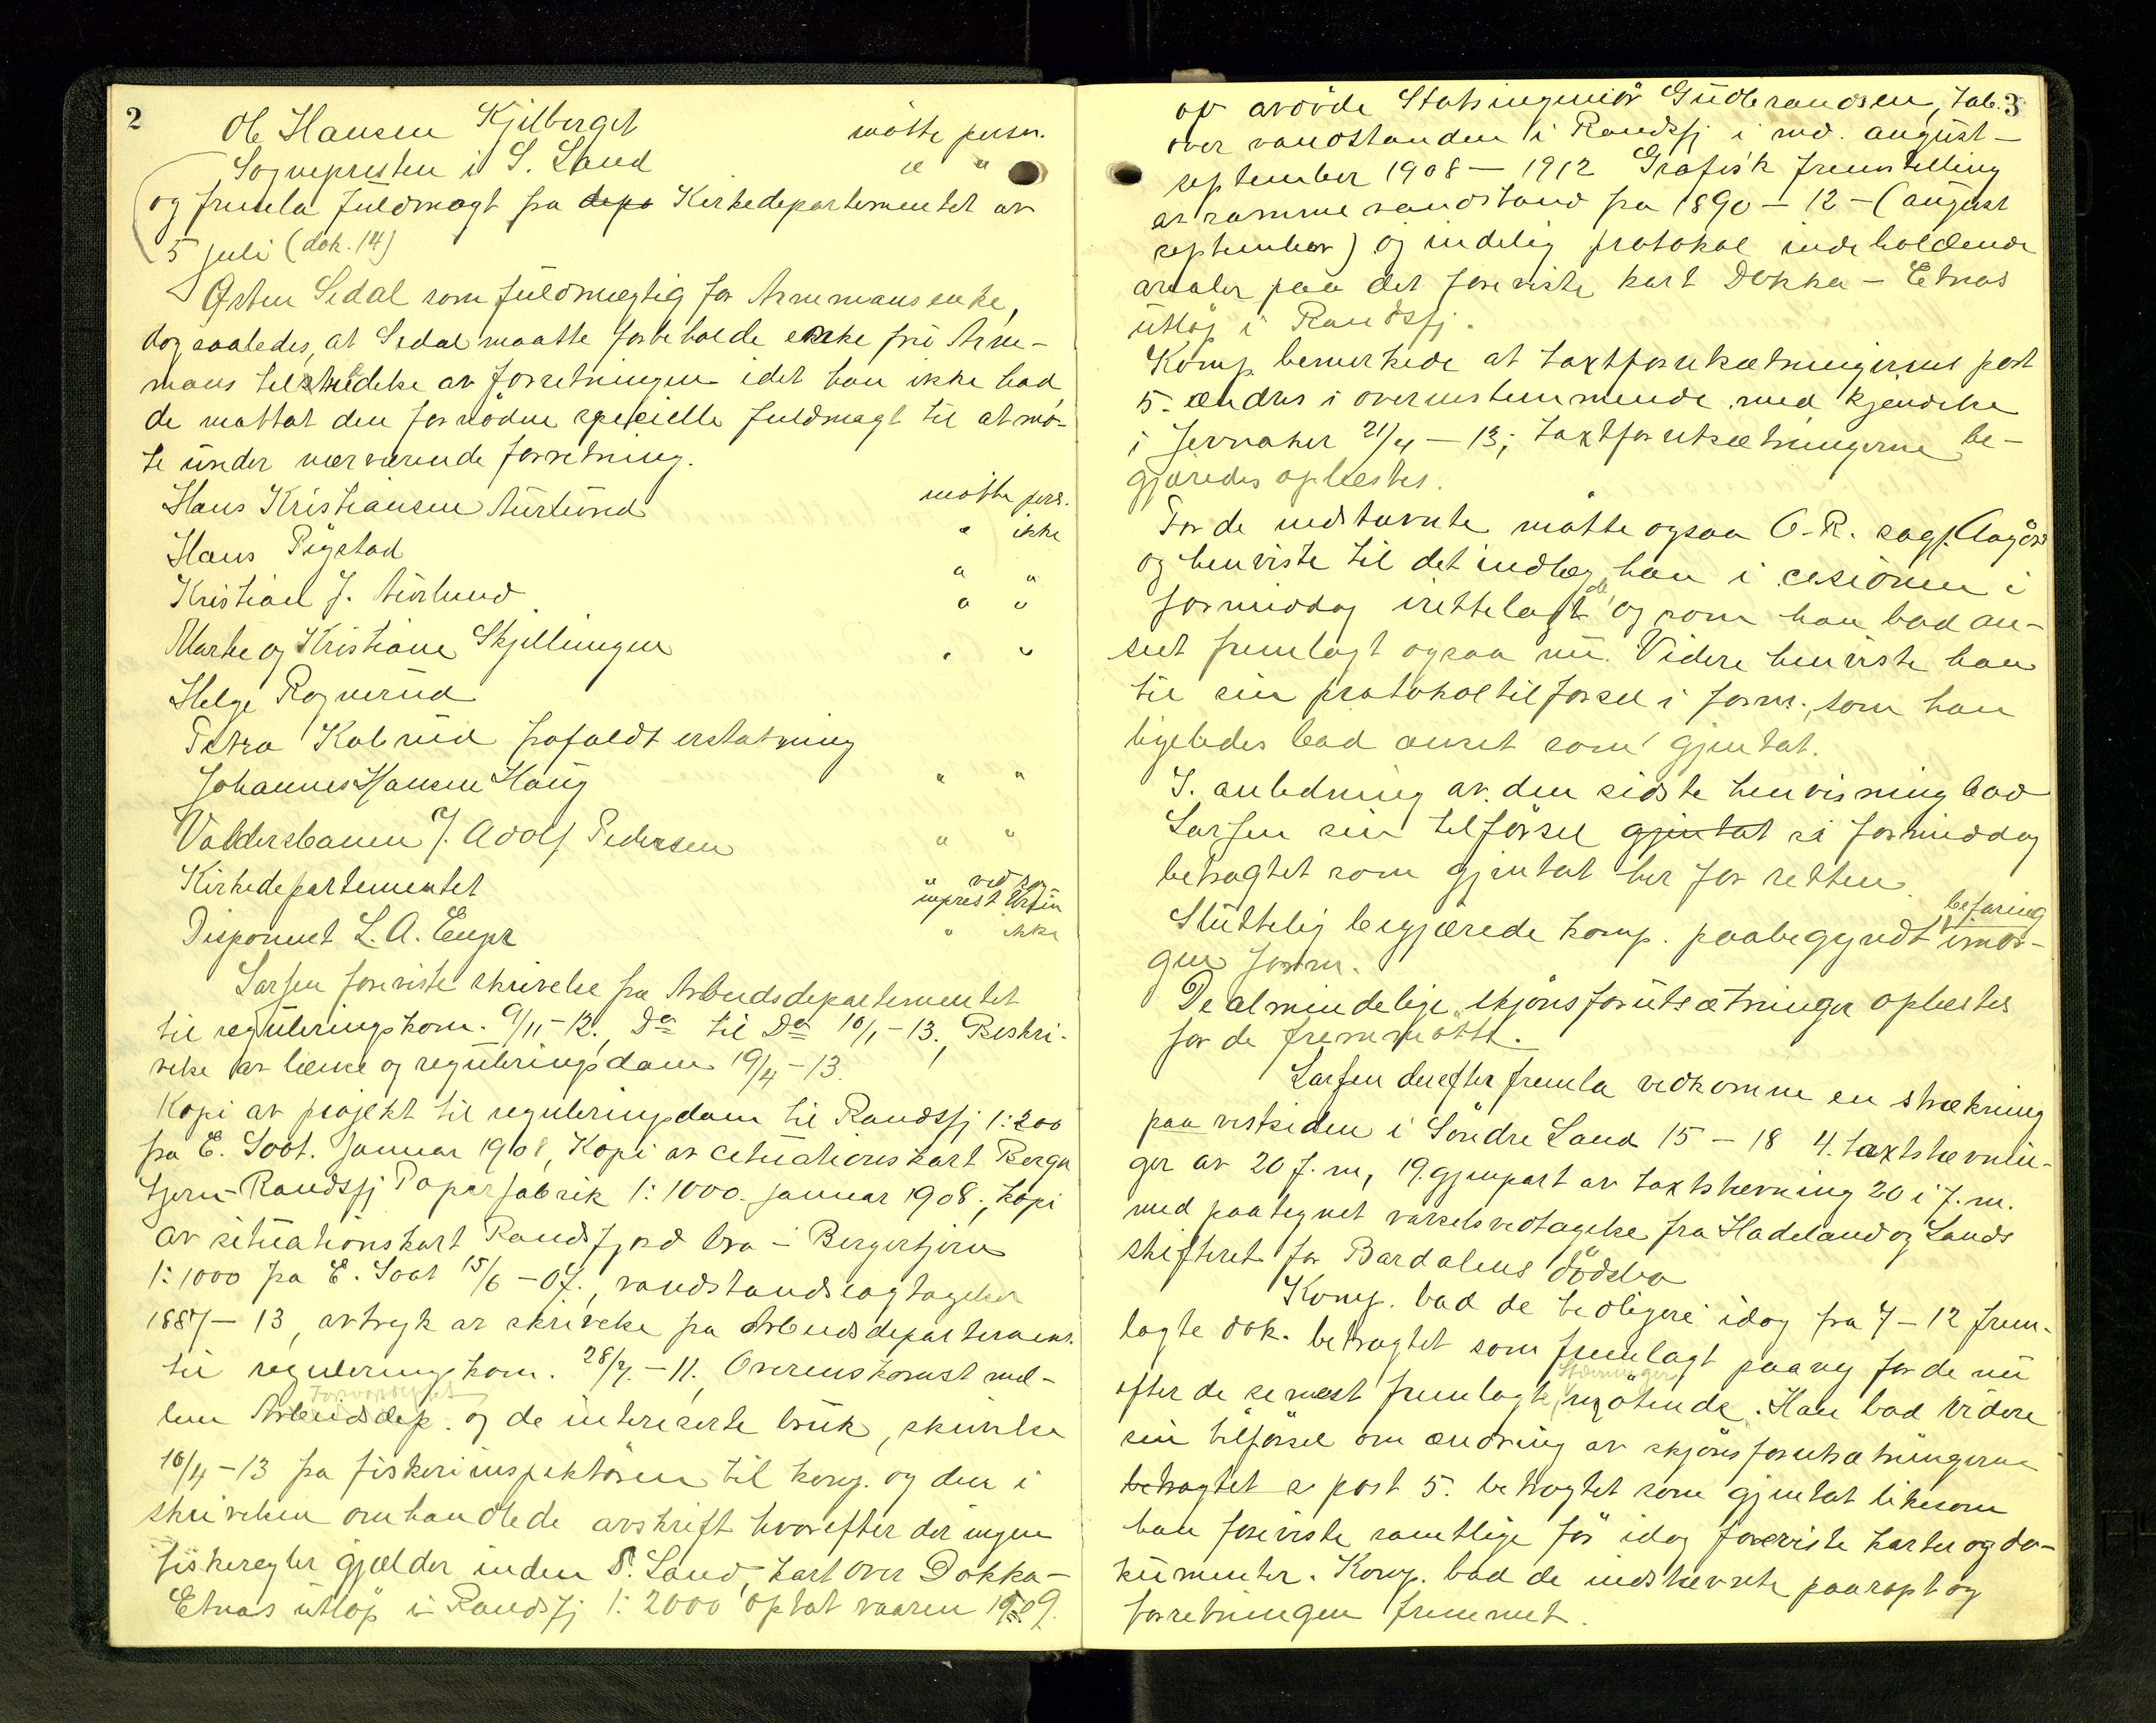 2
Ole Hansen Kjilberget møtte person.
Sognepresten i S. Land " "
og fremla fuldmagt fra depa Kirkedepartementet av
5 juli (dok. 14)
Østen Sedal som fuldmægtig for Arnemans enke,
dog saaledes, at Sedal maatte forbeholde enke fru Arne-
mans tilstedelse av forretningen idet han ikke had
de mottat den fornødne specielle fuldmagt til at mø-
te under nærværende forretning.
Hans Kristiansen Aurlund møtte pers.
Hans Pigstad " ikke
Kristian J. Aurlund " "
Marte og Kristiane Skjellingen " "
Helge Rognerud " "
Petra Kolrud frafaldt erstatning
Johannes Hansen Haug " "
Valdersbanen f. Adolf Pedersen " "
Kirkedepartementet " ved sog
neprest
Disponent L. A. Enger " ikke
Larsen foreviste skrivelse fra Arbeidsdepartementet
til reguleringskom. 9/11-12., Do til Do 10/1-13., Beskri-
velse av lænse og reguleringsdam 19/4-13.
Kopi av projekt til reguleringsdam til Randsfj 1:200
fra E. Soot. Januar 1908, Kopi av cituationskart Berger
tjern-Randsfj Papirfabrik 1:1000. januar 1908., kopi
av situationskart Randsfjord bro - Bergertjern
1:1000 fra E. Soot 15/6-07., vandstandsiagtagelser
1887-13, avtryk av skrivelse fra Arbeidsdepartement.
til reguleringskom. 28/7.-11. Overenskomst mel-
Forsvarsdepet
lem Arbeidsdep. og de intereserte bruk, skrivelse
16/4-13 fra fiskeriinspektøren til komp. og den i
skrivelsen omhandlede avskrift hvorefter der ingen
fiskeregler gjælder inden S. Land, kart over Dokka-
Etnas utløp i Randsfj 1:2000 optat vaaren 1909.
3
op avdøde Statsingeniør Gudbrandsen, Tab.
over vandstanden i Randsfj i md. august-
september 1908-1912 Grafisk fremstilling
av samme vandstand fra 1890-12-(august
september) og endelig protokol indeholdende
arealer paa det foreviste kart Dokka-Etnas
utløp i Randsfj.
Komp bemerkede at taxtforutsætningernes post
5. ændres i overenstemmende med kjendelse
i Jevnaker 21/4-13; taxtforutsætningerne be-
gjæredes oplæstes.
For de indstevnte møtte ogsaa O.R. sagf. Aagård
og henviste til det indlæg han i cesionen i
formiddag irettelagt og som han bad an-
seet fremlagt ogsaa nu. Videre henviste han
til sin protokoltilførsel i form., som han
ligeledes bad anset som gjentat.
I. anledning av den sidste henvisning bad
Larsen sin tilførsel gjentat si formiddag
betragtet som gjentat her for retten.
befaring
Sluttelig begjærede komp. paabegyndt imor-
gen form.
De almindelige skjønsforutsætninger oplæstes
for de fremmøtte.
Larsen derefter fremla vedkomme en strækning
paa vestsiden i Søndre Land 15-18 4. taxtstevnin-
ger av 20 f. m, 19. gjenpart av taxtstevning 20 i f. m.
med paategnet varselsvedtagelse fra Hadeland og Lands
skifteret for Bardalens dødsbo
Komp. bad de tidligere idag fra 7-12 frem-
lagte dok. betragtet som fremlagt paany for de nu
Stevninger
efter de senest fremlagte møtende. Han bad videre
sin tilførsel om ændring av skjønsforutsætningerne
betragtet s post 5. betragtet som gjentat likesom
han foreviste samtlige før idag foreviste karter og do-
kumenter. Komp. bad de indstevnte paaropt og
forretningen fremmet.